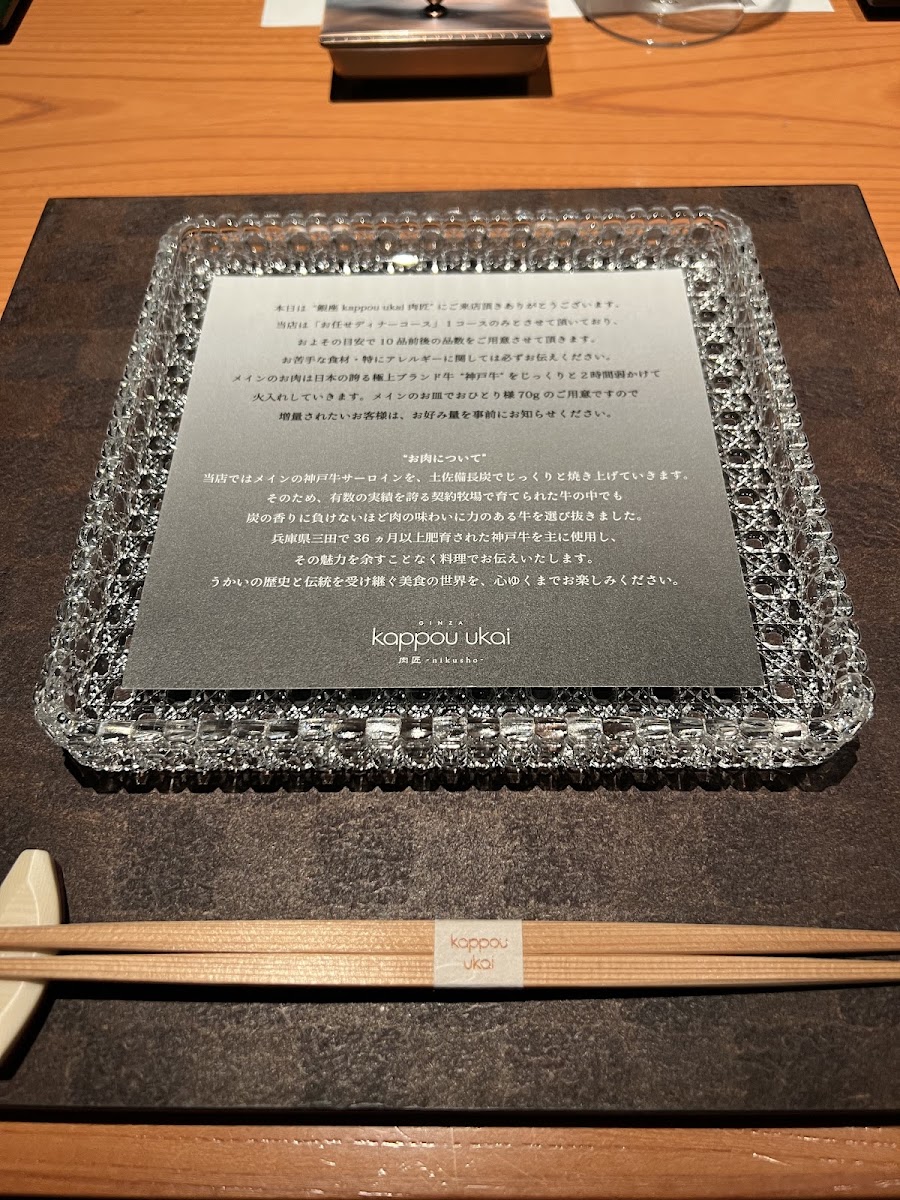 本日は "銀座 kappou ukai 肉匠" にご来店頂きありがとうございます。
当店は「お任せディナーコース」1コースのみとさせて頂いており、
およその目安で 10 品前後の品数をご用意させて頂きます。
お苦手な食材・特にアレルギーに関しては必ずお伝えください。
メインのお肉は日本の誇る極上ブランド牛 "神戸牛" をじっくりと2時間弱かけて
火入れしていきます。メインのお皿でおひとり様 70g のご用意ですので
増量されたいお客様は、お好み量を事前にお知らせください。
"お肉について"
当店ではメインの神戸牛サーロインを、土佐備長炭でじっくりと焼き上げていきます。
そのため、有数の実績を誇る契約牧場で育てられた牛の中でも
炭の香りに負けないほど肉の味わいに力のある牛を選び抜きました。
兵庫県三田で 36 ヵ月以上肥育された神戸牛を主に使用し、
その魅力を余すことなく料理でお伝えいたします。
うかいの歴史と伝統を受け継ぐ美食の世界を、心ゆくまでお楽しみください。
GINZA
kappou ukai
肉匠 -nikusho-
kappou
ukai